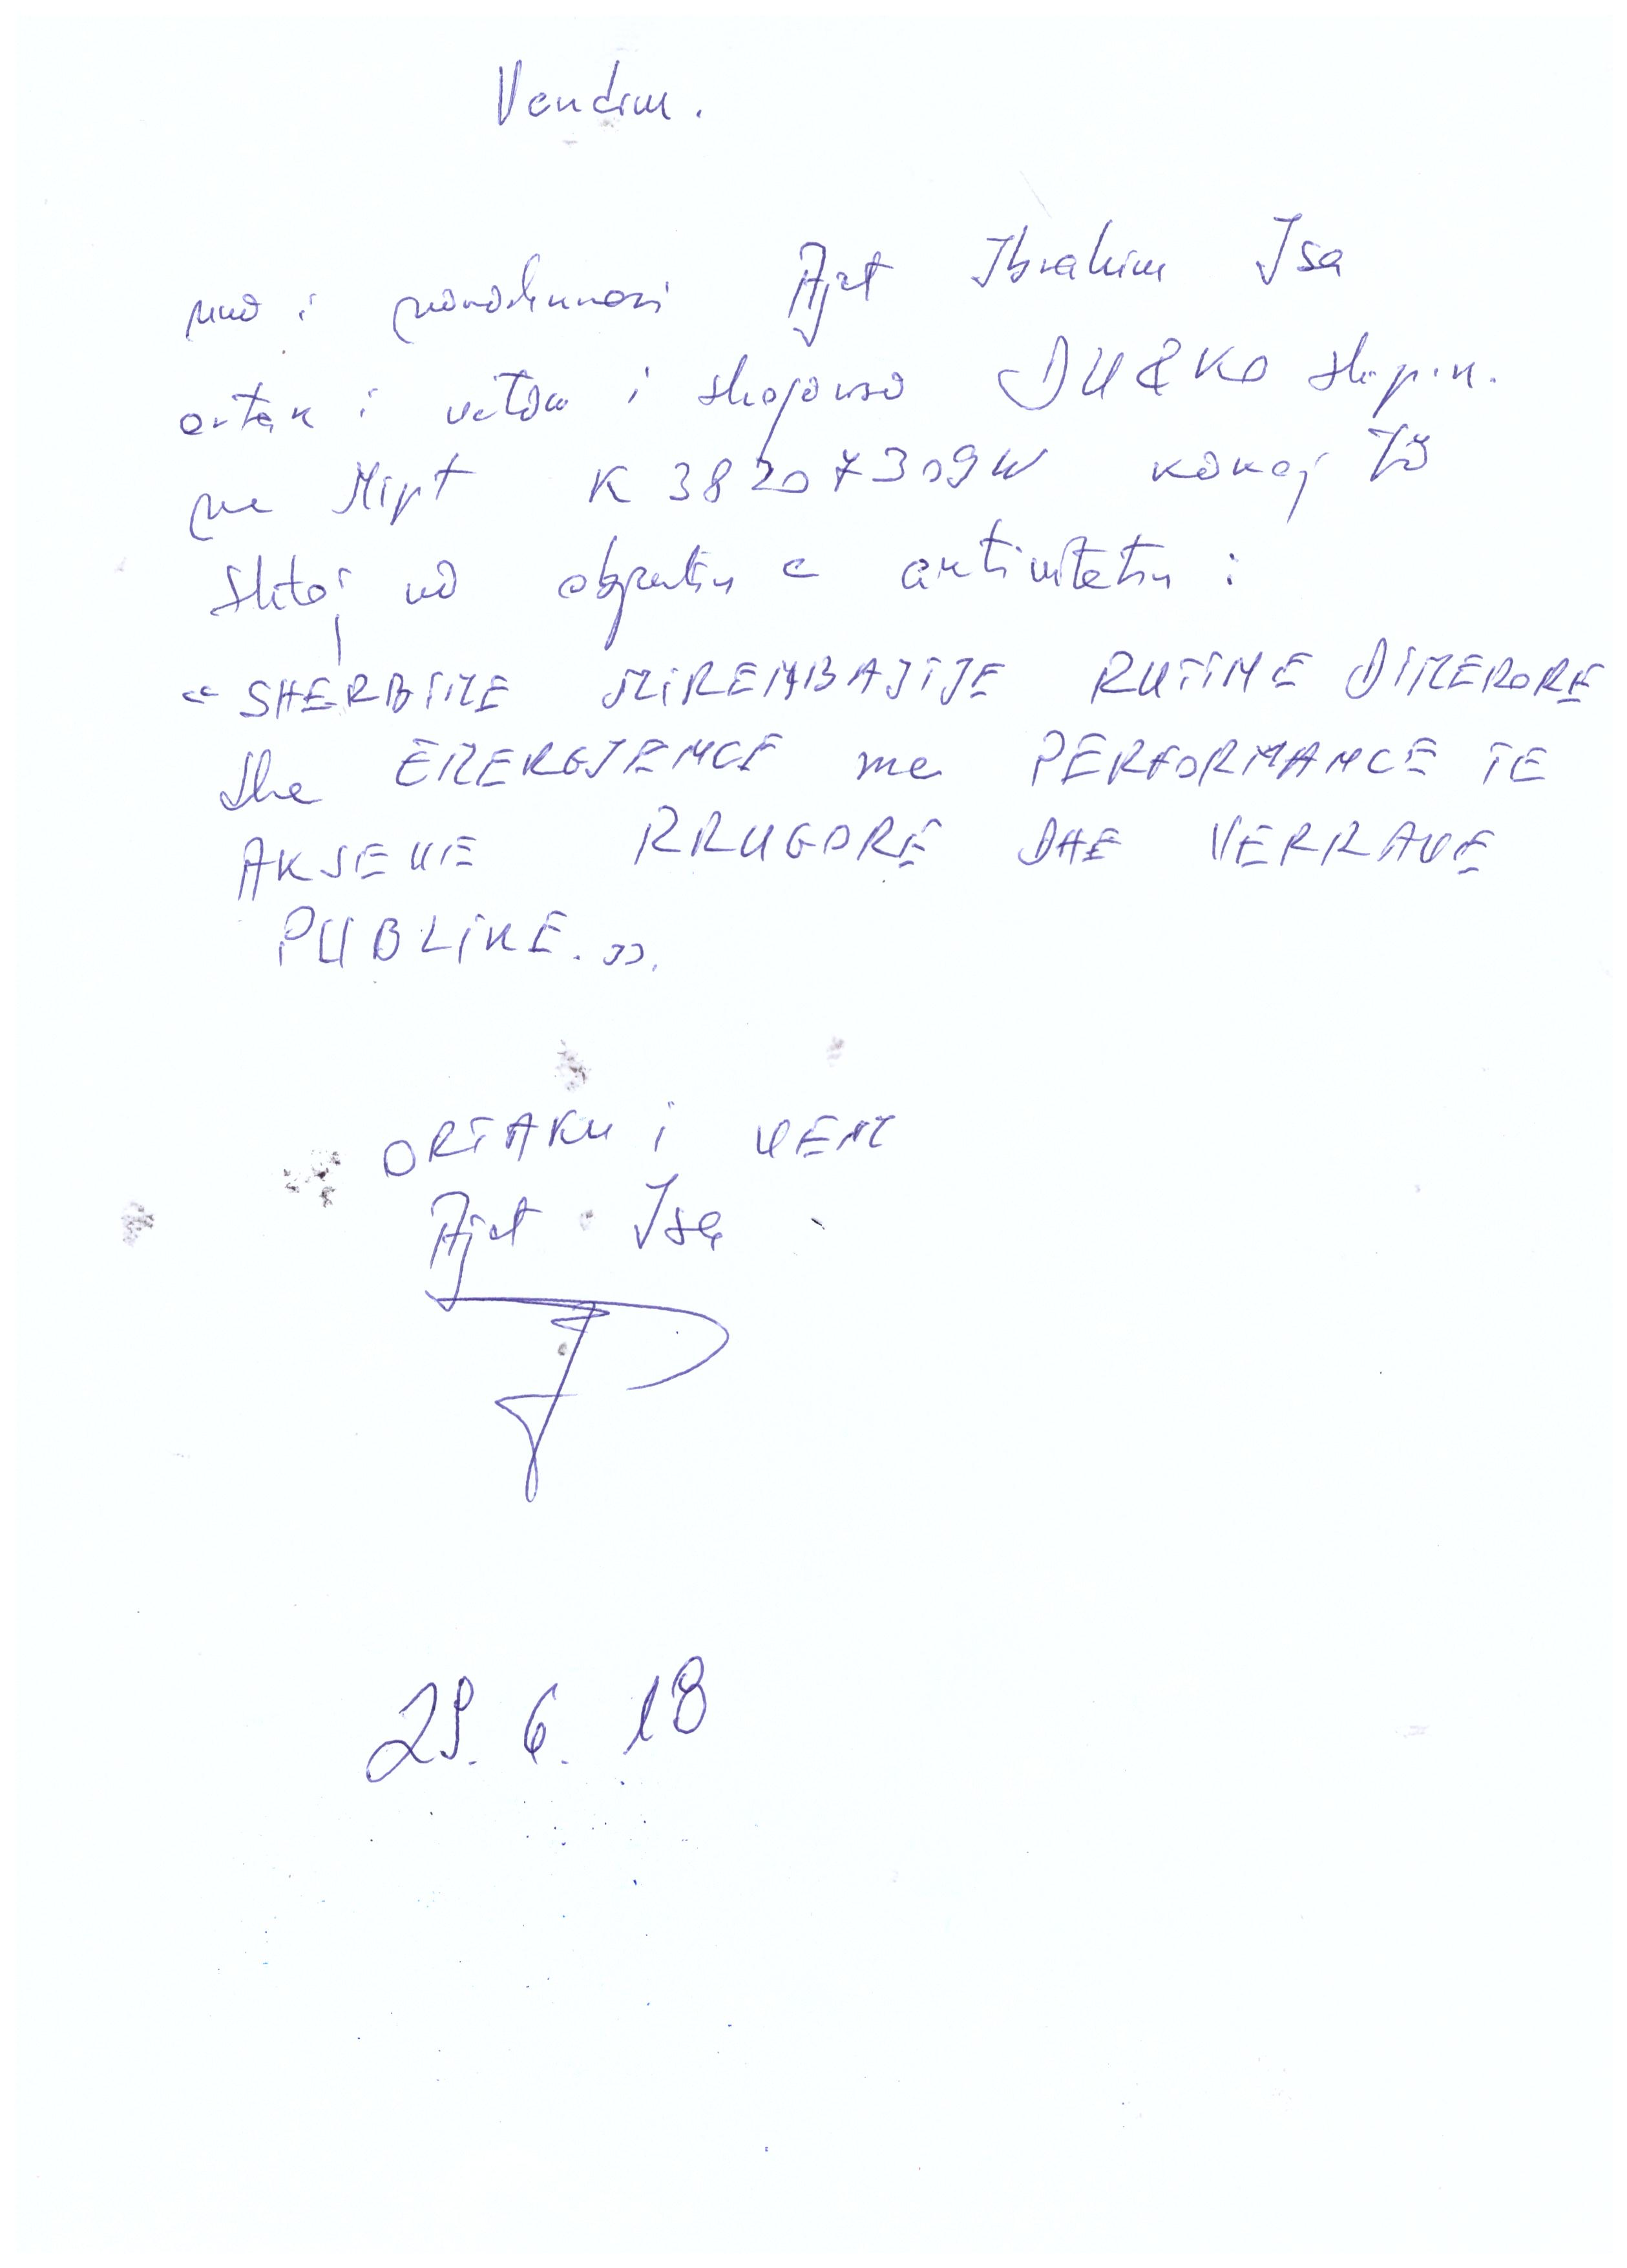 Vendim.
unë i nënshkruari Ajet Ibrahim Isa
ortak i vetëm i shoqërisë DU&KO sh.p.k.
me Nipt K 38207309W kërkoj të
shtoj në objektin e aktivitetin :
" SHERBIME MIREMBAJTJE RUTINE DIMERORE
dhe EMERGJENCE me PERFORMANCE TE
AKSEVE RRUGORE DHE VEPRAVE
PUBLIKE. ".
ORTAKU i VETM
Ajet Isa
29. 6. 18